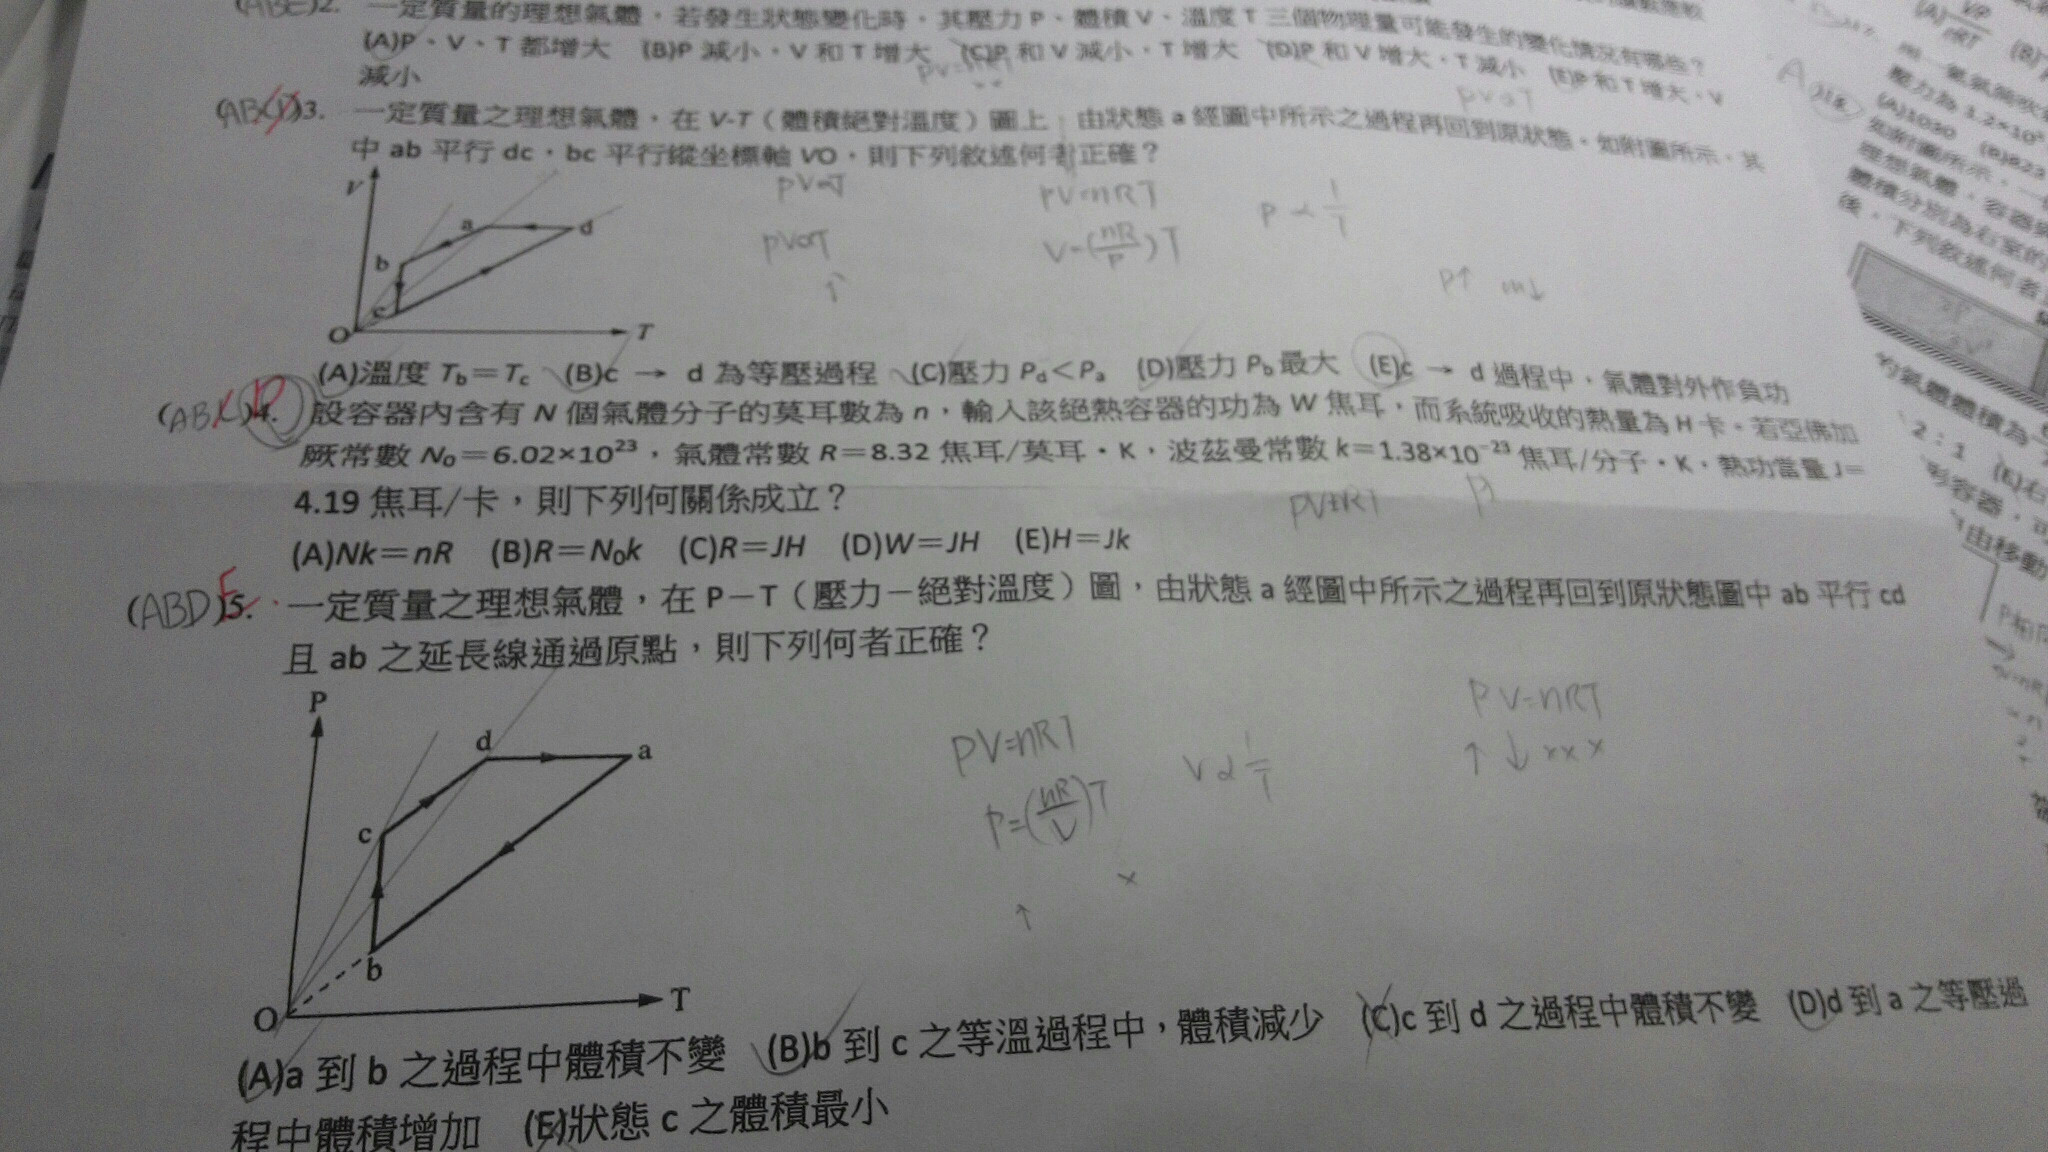 (ABE)2. 一定質量的理想氣體，若發生狀態變化時，其壓力 P、體積 V、溫度 T 三個物理量可能發生的變化情況有哪些？
(A)P、V、T 都增大 (B)P 減小，V 和 T 增大 (C)P 和 V 減小，T 增大 (D)P 和 V 增大，T 減小 (E)P 和 T 增大，V
減小
PV=nRT
PV∝T
(ABCD)3. 一定質量之理想氣體，在 V-T（體積絕對溫度）圖上，由狀態 a 經圖中所示之過程再回到原狀態，如附圖所示，其
中 ab 平行 dc，bc 平行縱坐標軸 VO，則下列敘述何者正確？
V
a
d
b
c
O
T
PV∝T
PV=nRT
P ∝ 1/T
PV∝T
V=(nR/P)T
↑
P↑
m↓
(A)溫度 Tb＝Tc (B)c → d 為等壓過程 (C)壓力 Pd＜Pa (D)壓力 Pb 最大 (E)c → d 過程中，氣體對外作負功
D
(AB )4. 設容器內含有 N 個氣體分子的莫耳數為 n，輸入該絕熱容器的功為 W 焦耳，而系統吸收的熱量為 H 卡。若亞佛加
厥常數 N₀＝6.02×10²³，氣體常數 R＝8.32 焦耳/莫耳・K，波茲曼常數 k＝1.38×10⁻²³ 焦耳/分子・K，熱功當量 J＝
4.19 焦耳/卡，則下列何關係成立？
(A)Nk＝nR (B)R＝N₀k (C)R＝JH (D)W＝JH (E)H＝Jk
E
(ABD)5. 一定質量之理想氣體，在 P－T（壓力－絕對溫度）圖，由狀態 a 經圖中所示之過程再回到原狀態圖中 ab 平行 cd
且 ab 之延長線通過原點，則下列何者正確？
P
d
a
c
b
O
T
PV=nRT
P=(nR/V)T
V∝1/T
PV=nRT
↑ ↓ x x x
x
↑
(A)a 到 b 之過程中體積不變 (B)b 到 c 之等溫過程中，體積減少 (C)c 到 d 之過程中體積不變 (D)d 到 a 之等壓過
程中體積增加 (E)狀態 c 之體積最小
(A)VP/RT
(B)
壓力為 1.2×10⁵
(A)1030 (B)823
如附圖所示，一
理想氣體，容器
體積分別為右室的
後，下列敘述何者
的氣體體積為
2：1 (E)右
形容器，可
自由移動